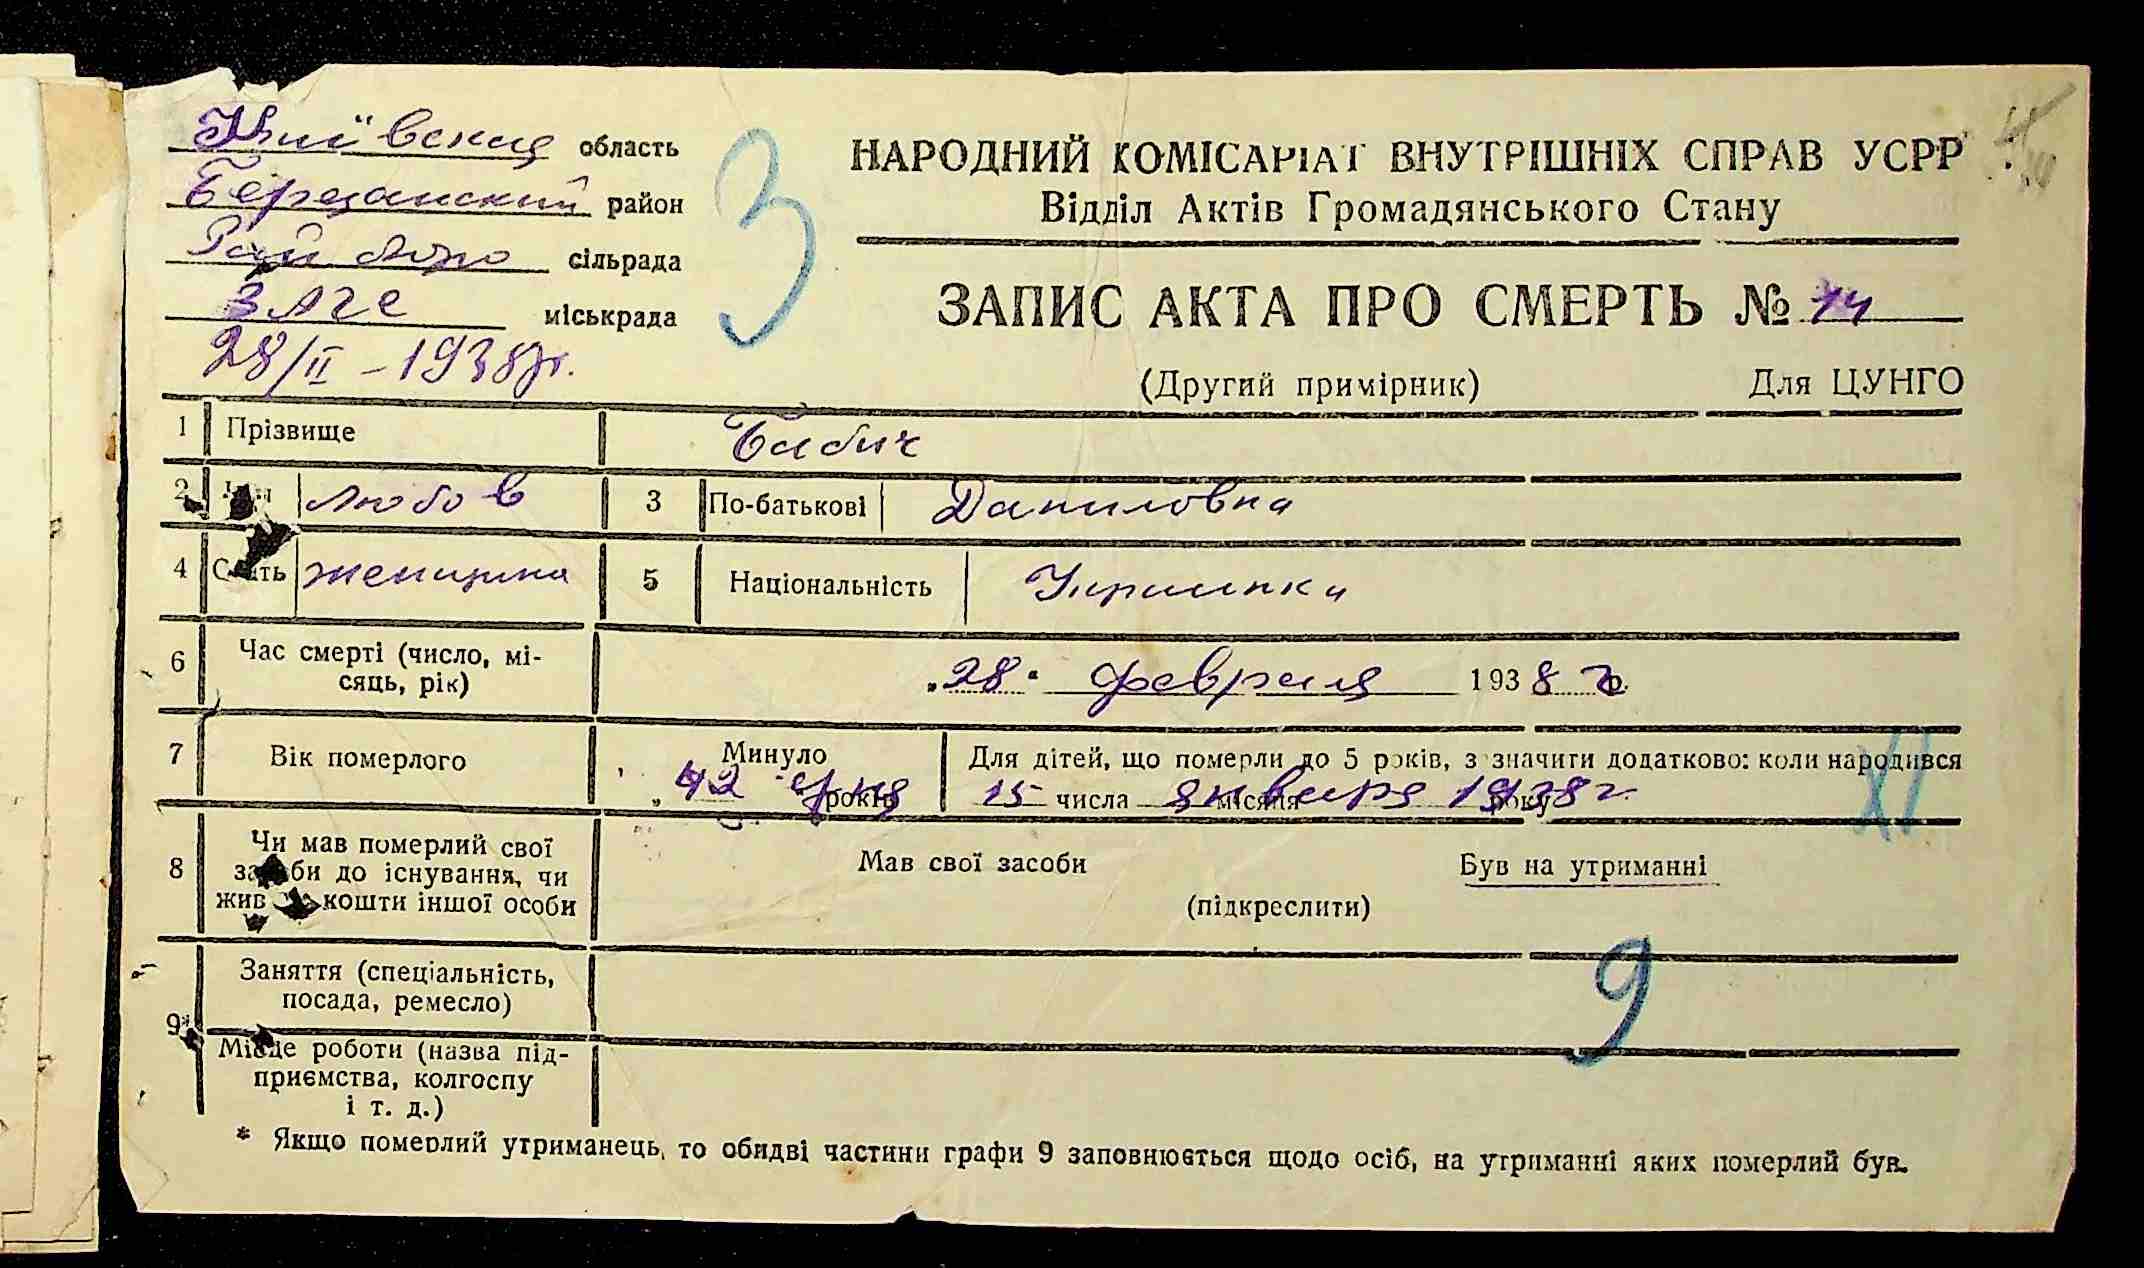 Київский область
Березанский район
Рай бюро сільрада
ЗАГС міськрада
28/II – 1938 г.
3
НАРОДНИЙ КОМІСАРІАТ ВНУТРІШНІХ СПРАВ УСРР
Відділ Актів Громадянського Стану
ЗАПИС АКТА ПРО СМЕРТЬ № 14
(Другий примірник) Для ЦУНГО
1 Прізвище Бабич
2 Любов 3 По-батькові Даниловна
4 Стать женщина 5 Національність Украинка
6 Час смерті (число, мі-
сяць, рік)
„28" февраля 1938 г.
7 Вік померлого
Минуло
42 дня років
Для дітей, що померли до 5 років, зазначити додатково: коли народився
15 числа января місяця 1938 г. року
XI
8 Чи мав померлий свої
засоби до існування, чи
жив кошти іншої особи
Мав свої засоби Був на утриманні
(підкреслити)
9
9* Заняття (спеціальність,
посада, ремесло)
Місце роботи (назва під-
приємства, колгоспу
і т. д.)
* Якщо померлий утриманець, то обидві частини графи 9 заповнюється щодо осіб, на утриманні яких померлий був.